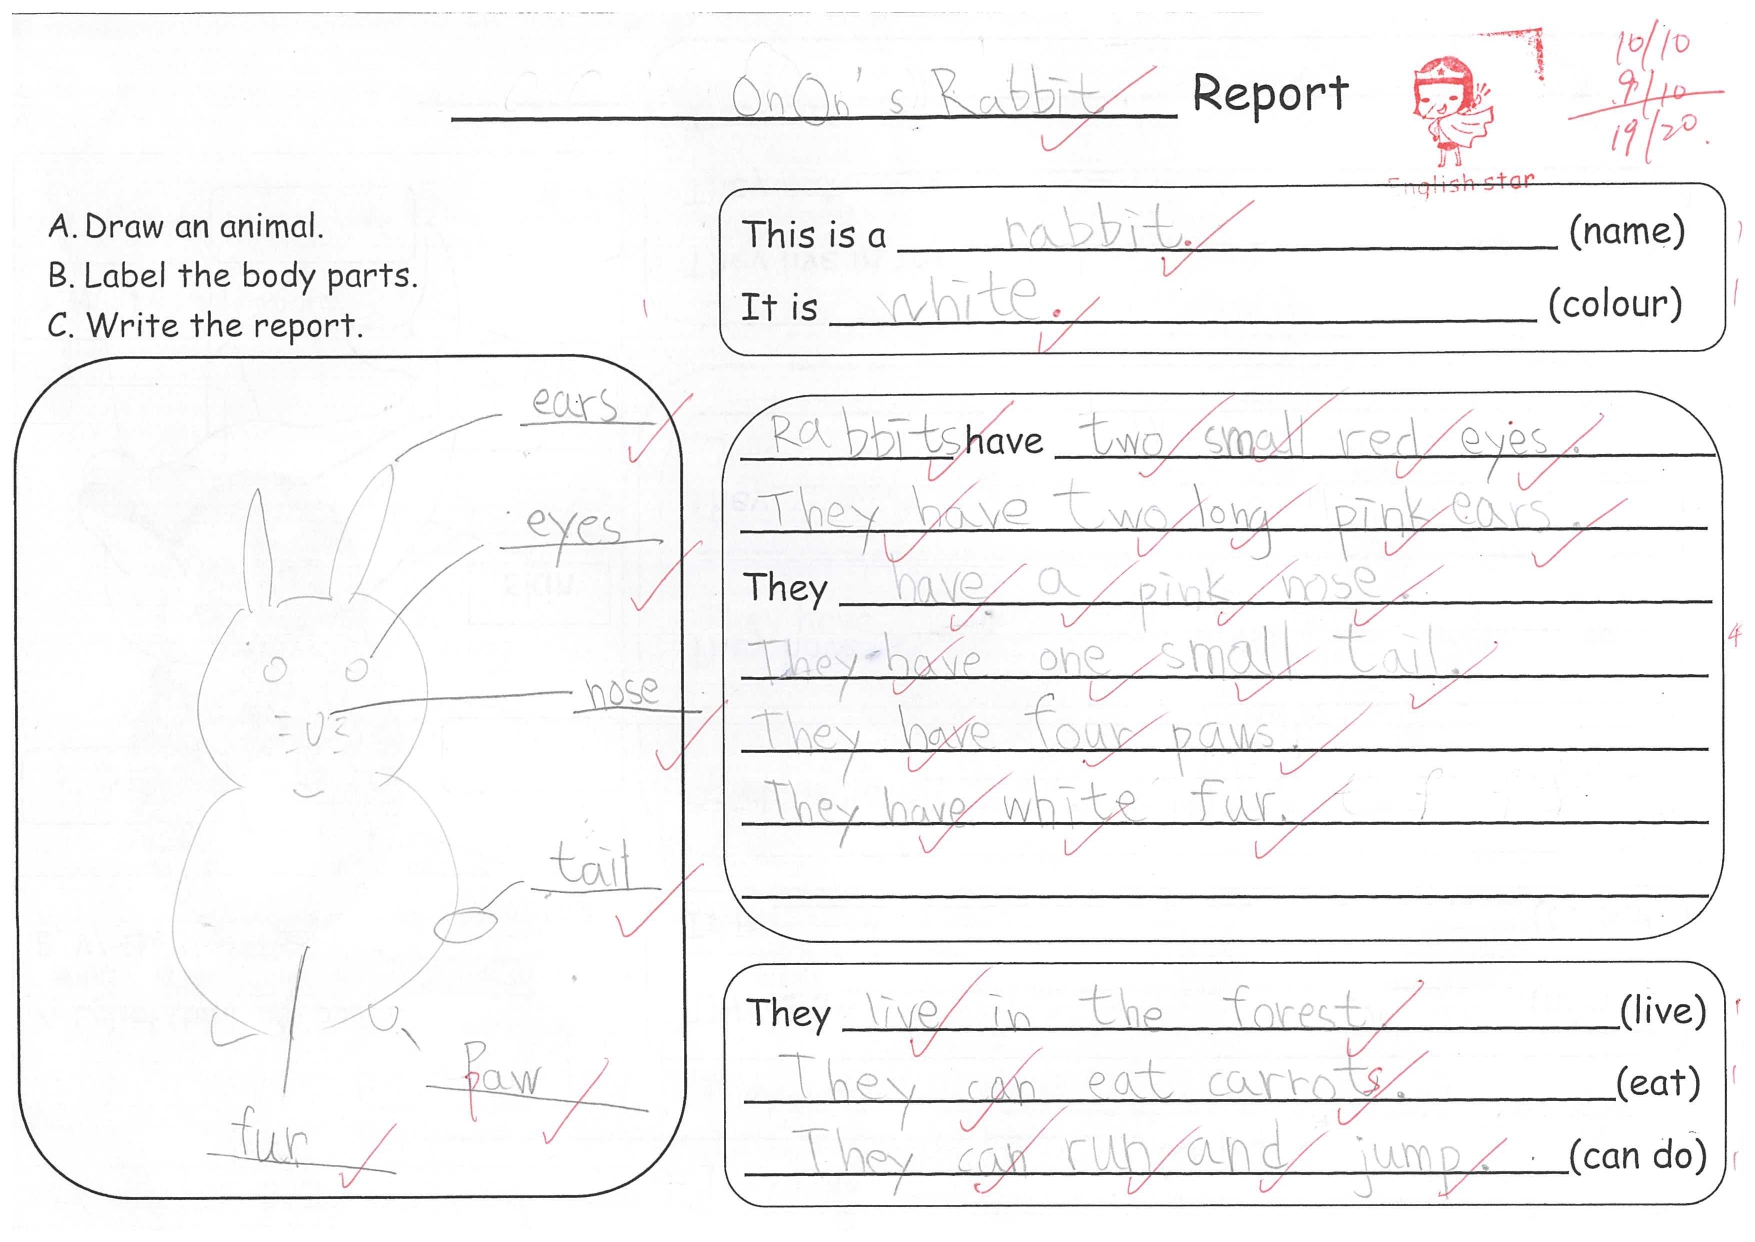 OnOn's Rabbit Report
10/10
9/10
19/20.
English star
A. Draw an animal.
B. Label the body parts.
C. Write the report.
This is a rabbit. (name)
It is white. (colour)
1
1
1
ears
eyes
nose
tail
paw
fur
Rabbits have two small red eyes.
They have two long pink ears.
They have a pink nose.
They have one small tail.
They have four paws.
They have white fur.
4
They live in the forest (live)
They can eat carrots. (eat)
They can run and jump. (can do)
1
1
1